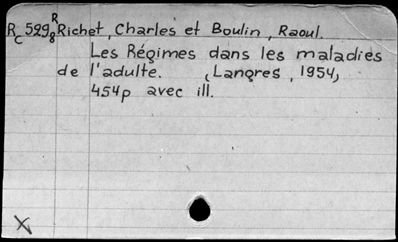 RC 529 R8 Richet, Charles et Boulin, Raoul.
Les Régimes dans les maladies
de l'adulte. (Langres, 1954)
454p avec ill.
X